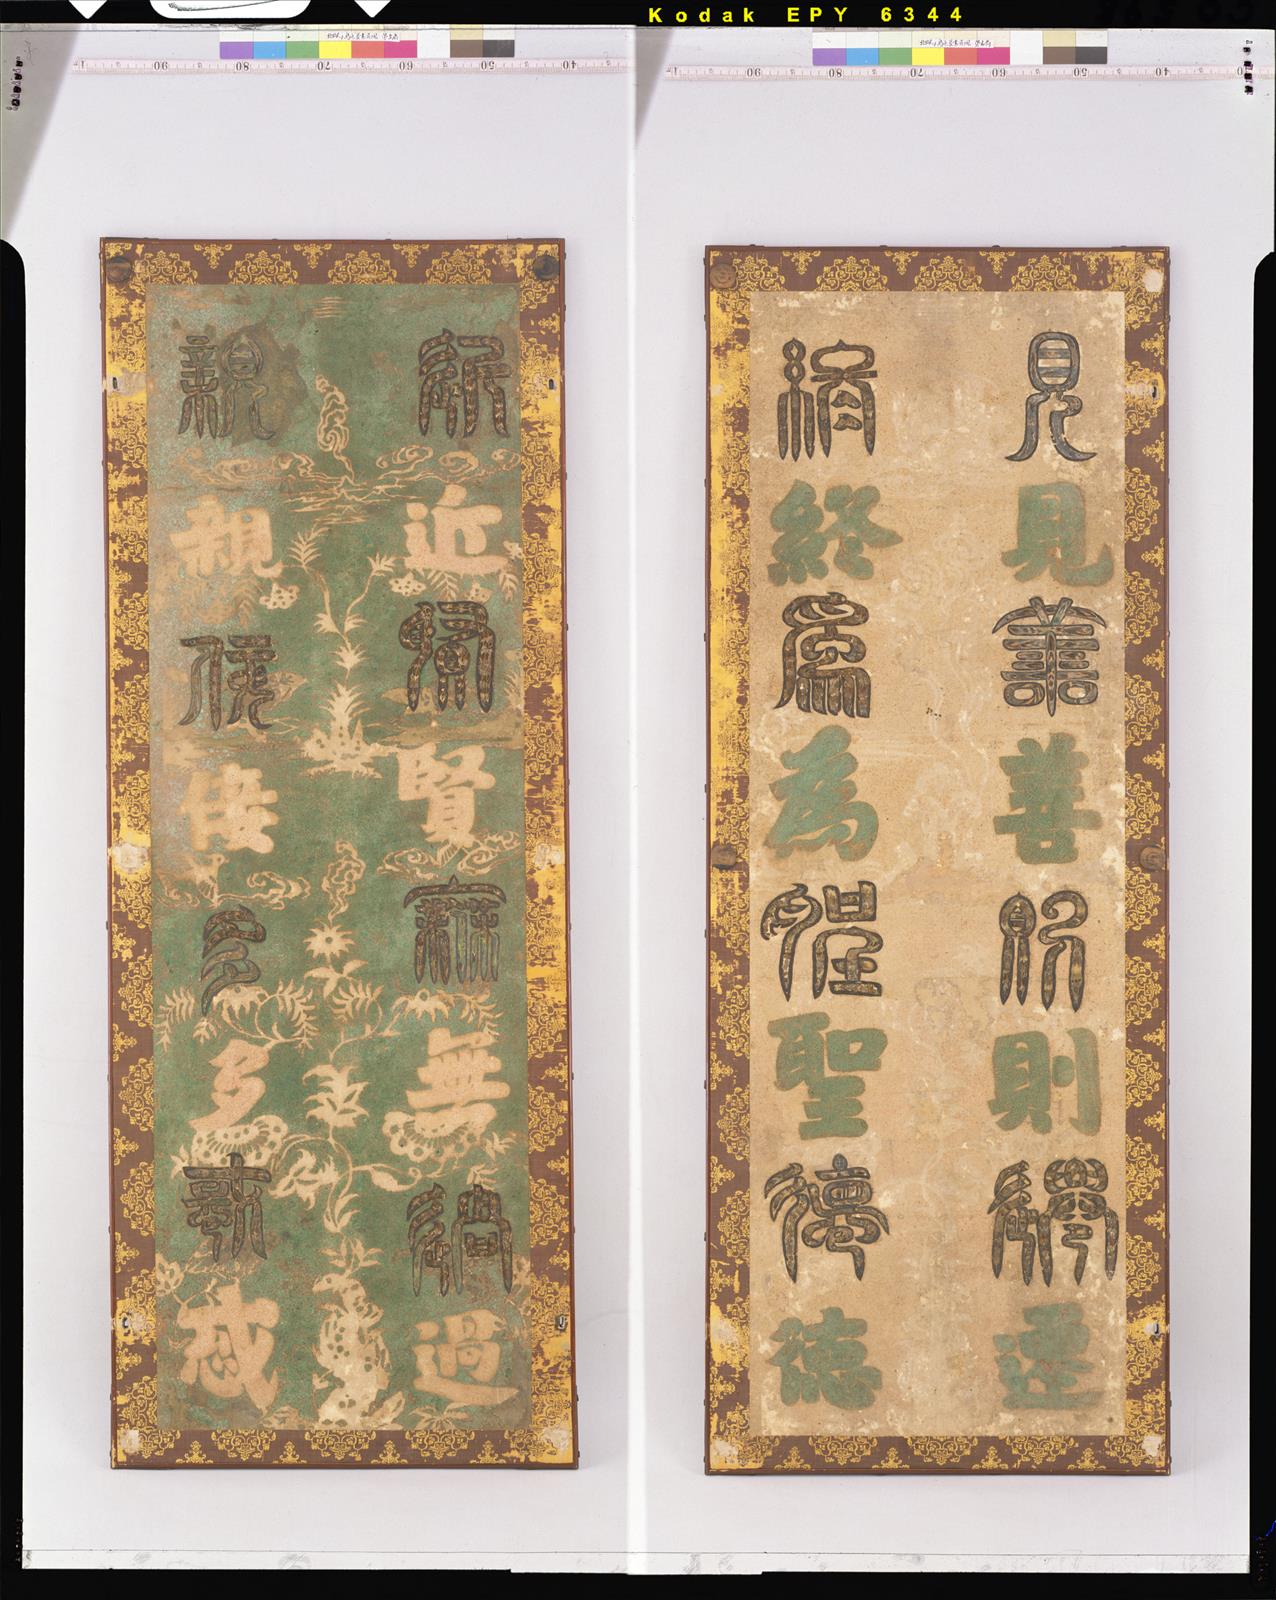 Kodak EPY 6344
見見善善則則遷遷
終終為為聖聖德德
近近賢賢無無過過
親親佞佞多多惑惑